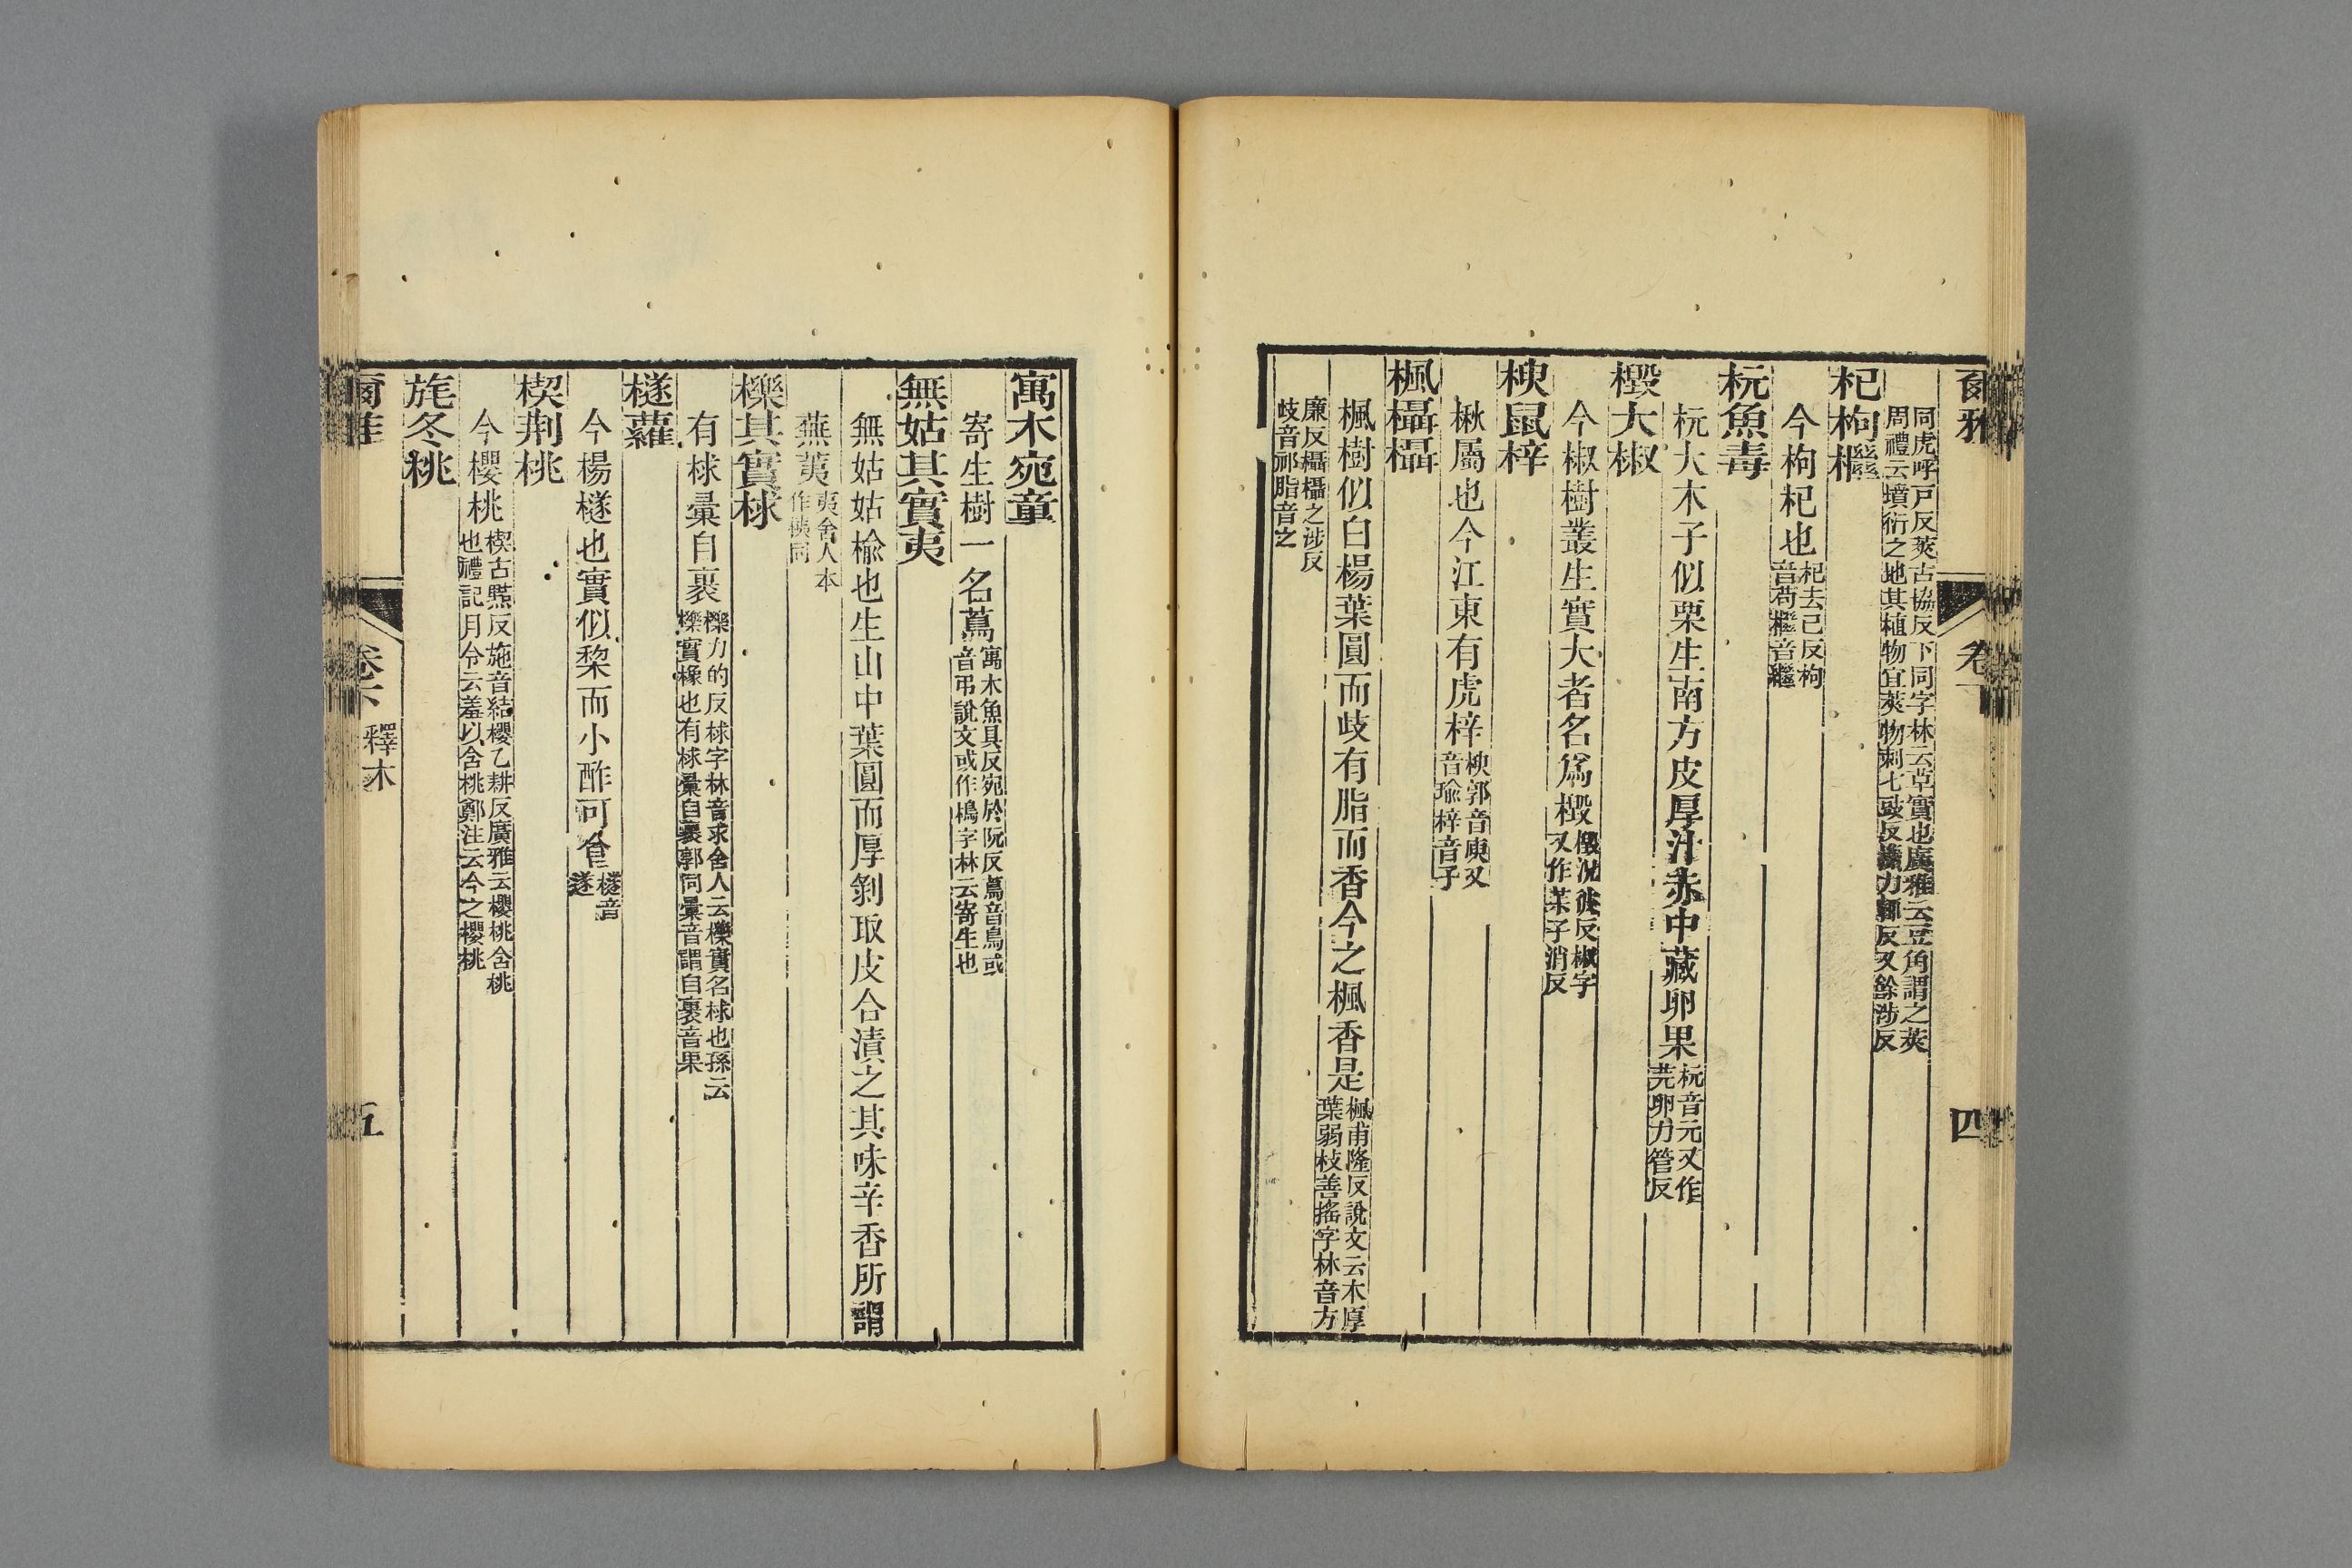 爾雅
卷下
四
同虎呼戶反莢古協反下同字林云草實也廣雅云豆角謂之莢
周禮云墳衍之地其植物宜莢物刺七豉反 力輒反又餘涉反
杞枸檵
今枸杞也杞去已反枸
音苟檵音繼
杬魚毒
杬大木子似栗生南方皮厚汁赤中藏卵果杬音元又作
芫卵力管反
檓大椒
今椒樹叢生實大者名爲檓檓況彼反椒字
又作茮子消反
楰鼠梓
楸屬也今江東有虎梓楰郭音庾又
音瑜梓音子
楓欇欇
楓樹似白楊葉圓而歧有脂而香今之楓香是楓甫隆反說文云木厚
葉弱枝善搖字林音方
廉反欇欇之涉反
歧音祁脂音之
寓木宛童
寄生樹一名蔦寓木魚具反宛於阮反蔦音鳥或
音弔說文或作樢字林云寄生也
無姑其實夷
無姑姑榆也生山中葉圓而厚剝取皮合漬之其味辛香所謂
蕪荑夷舍人本
作桋同
櫟其實梂
有梂彙自裹櫟力的反梂字林音求舍人云櫟實名梂也孫云
櫟實橡也有梂彙自裹郭同彙音謂自裹音果
檖蘿
今楊檖也實似棃而小酢可食檖音
遂
楔荆桃
今櫻桃楔古黠反施音結櫻乙耕反廣雅云櫻桃含桃
也禮記月令云羞以含桃鄭注云今之櫻桃
旄冬桃
爾雅
卷下
釋木
五